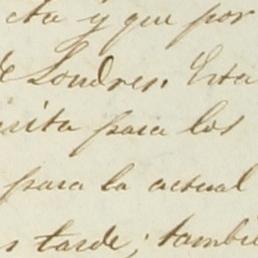 cta y que por
de Londres. Esta
isita para los
para la actual
s tarde; tambie